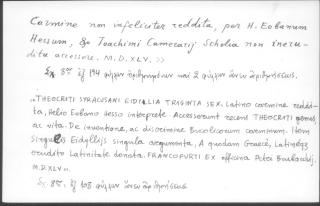 Carmine non infeliciter reddita, per H. Eobanum
Hessum, & Joachimi Camerarij Scholia non ineru-
dita accessere. M. D. XLV. >>
Σχ. 8ον ἐξ 194 φύλλων ἀριθμημένων καὶ 2 φύλλων ἄνευ ἀριθμήσεως.
„THEOCRITI SYRACUSANI EIDYLLIA TRIGINTA SEX. Latino carmine reddi-
ta, Helio Eobano Hesso interprete. Accesserunt recens THEOCRITI genus,
ac vita. De inventione, ac discrimine Bucolicorum carminum. Item
singulis Eidyllijs singula argumenta, A quodam Graecè, Latinèque
erudito Latinitate donata. FRANCOFURTI EX officina Petri Brubachij.
M.D.XLV.".
Σχ. 8ον. ἐξ 108 φύλλων ἄνευ ἀριθμήσεως